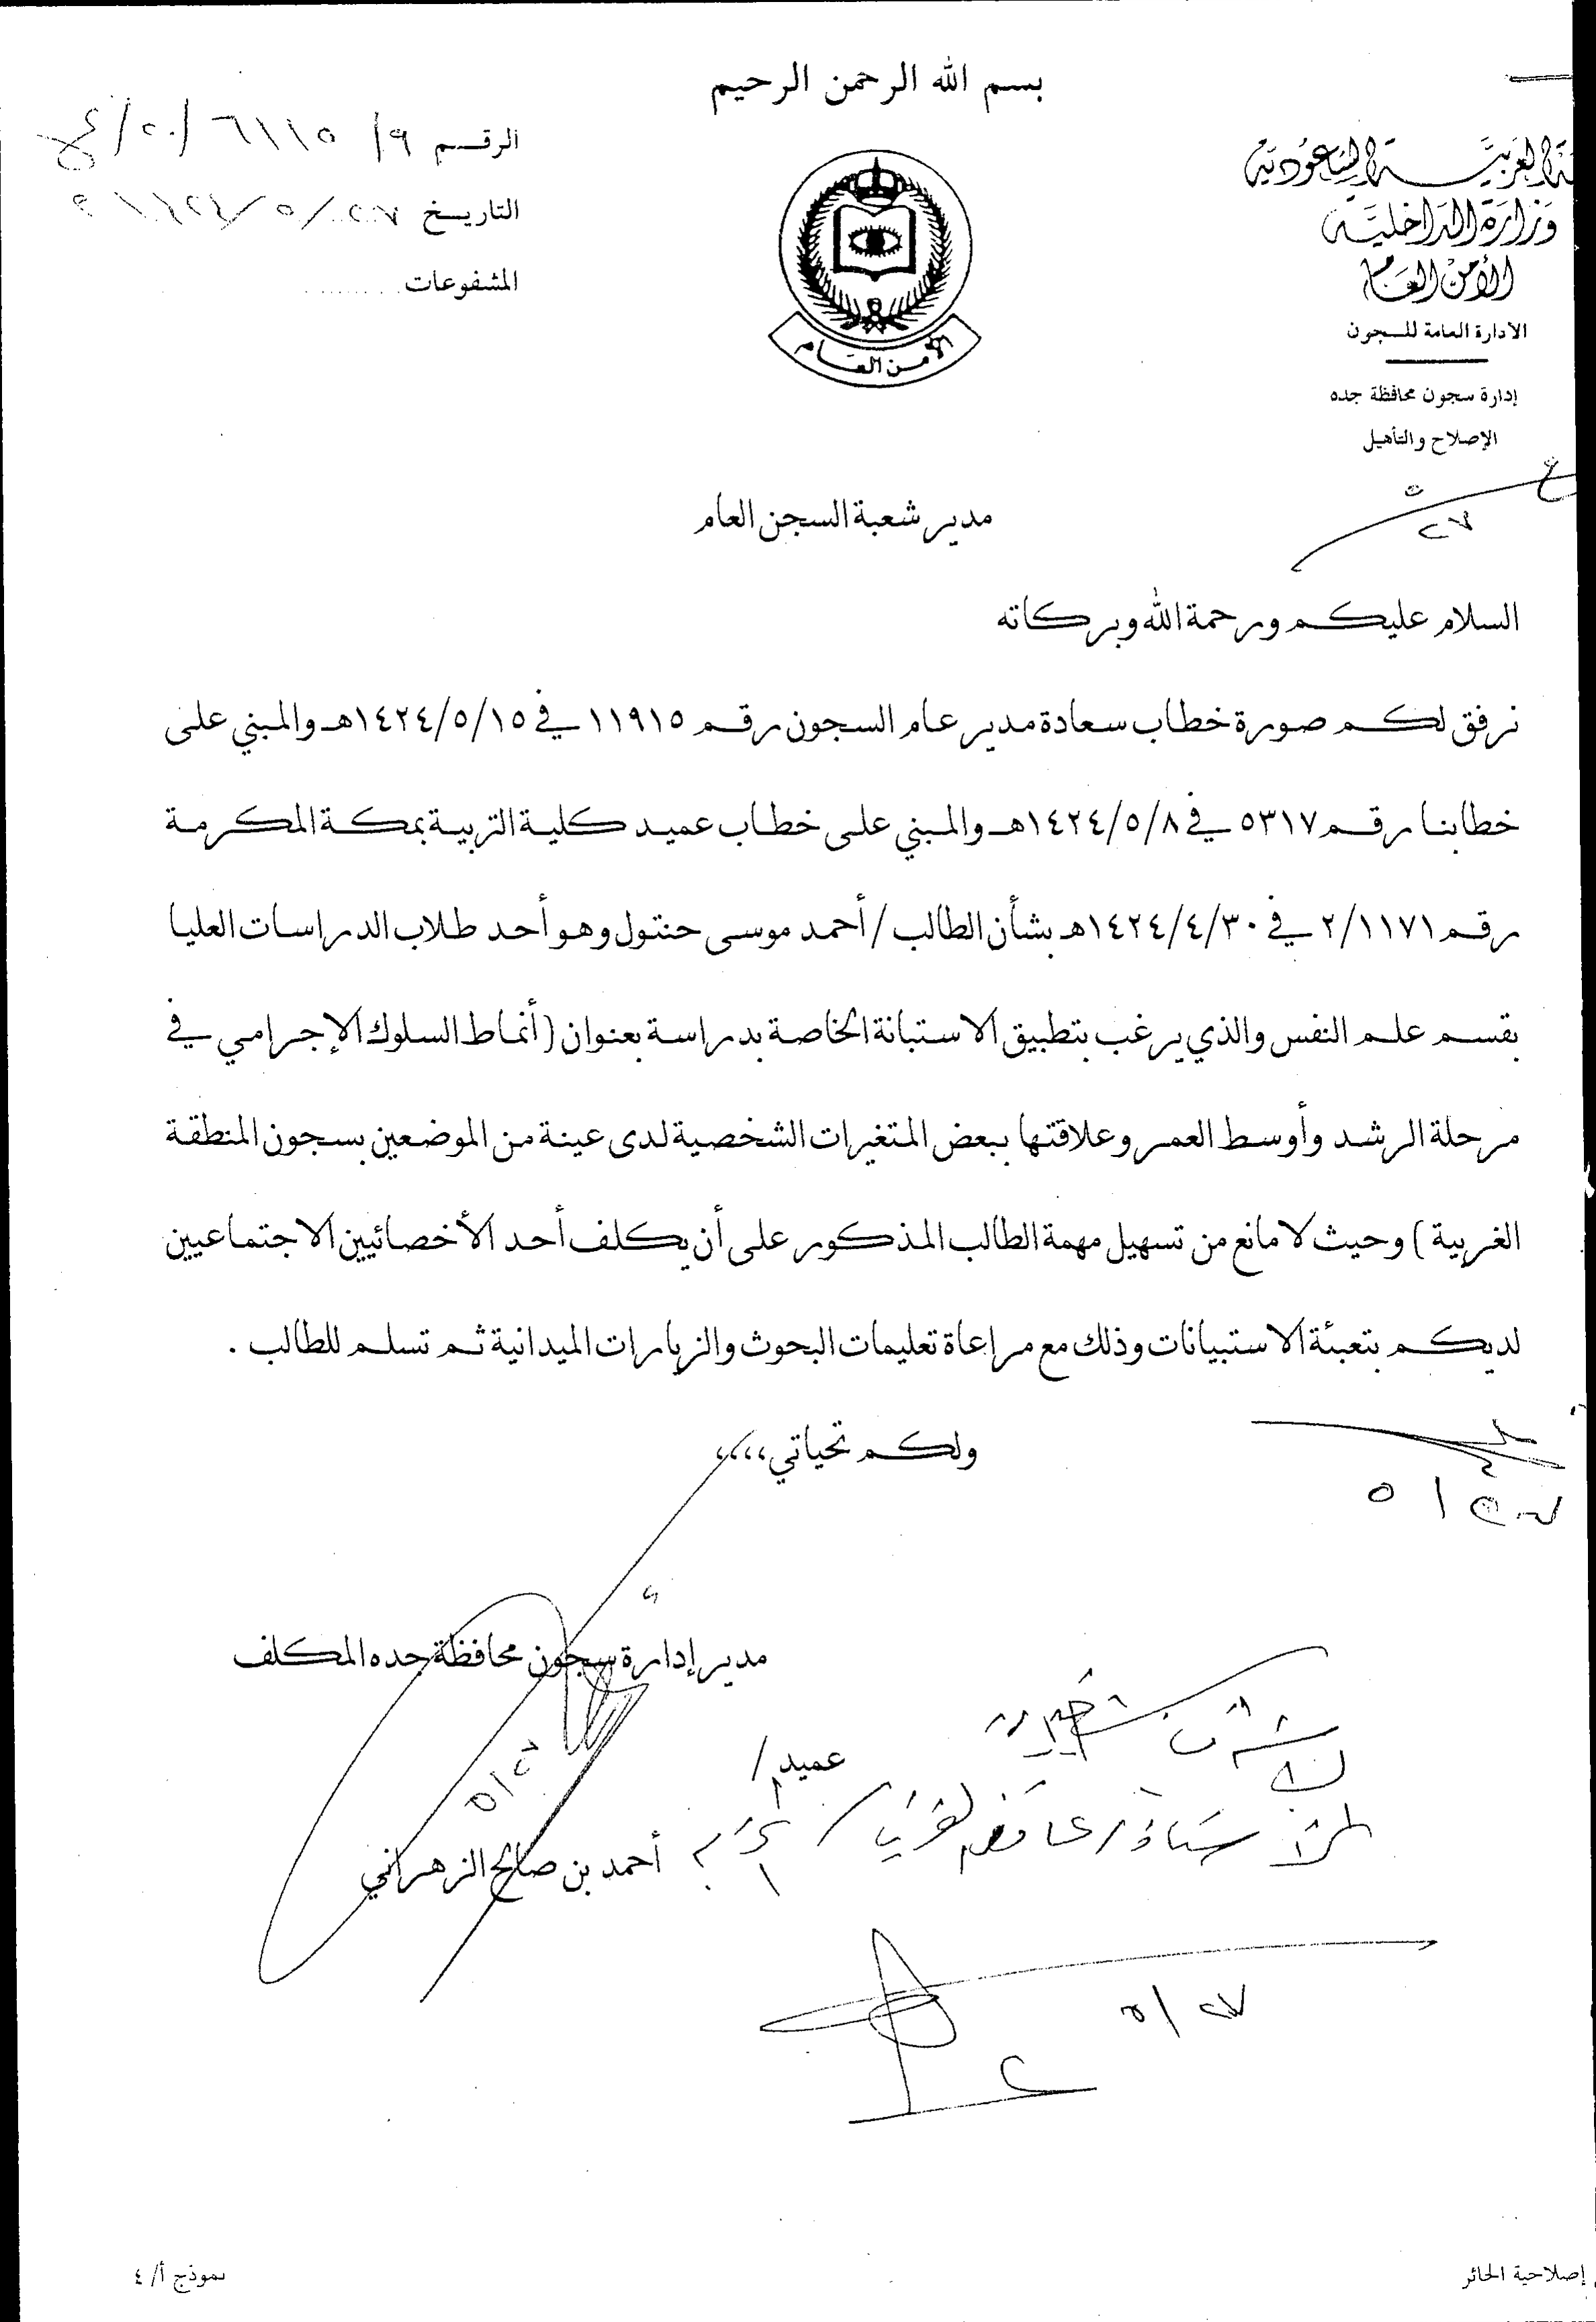 بسم الله الرحمن الرحيم
العربية السعودية
وزارة الداخلية
الأمن العام
الادارة العامة للسجون
إدارة سجون محافظة جده
الإصلاح والتأهيل
الرقم ٩/ ٦١١٥
التاريخ ٢٧/٥/
المشفوعات ........
الأمن العام
٥
٢٧
مدير شعبة السجن العام
السلام عليكم ورحمة الله وبركاته
نرفق لكم صورة خطاب سعادة مدير عام السجون رقم ١١٩١٥ في ١٤٢٤/٥/١٥هـ والمبني على
خطابنا رقم ٥٣١٧ في ١٤٢٤/٥/٨هـ والمبني على خطاب عميد كلية التربية بمكة المكرمة
رقم ٢/١١٧١ في ١٤٢٤/٤/٣٠هـ بشأن الطالب / أحمد موسى حنتول وهو أحد طلاب الدراسات العليا
بقسم علم النفس والذي يرغب بتطبيق الاستبانة الخاصة بدراسة بعنوان ( أنماط السلوك الإجرامي في
مرحلة الرشد وأوسط العمر وعلاقتها ببعض المتغيرات الشخصية لدى عينة من الموضعين بسجون المنطقة
الغربية ) وحيث لا مانع من تسهيل مهمة الطالب المذكور على أن يكلف أحد الأخصائيين الاجتماعيين
لديكم بتعبئة الاستبيانات وذلك مع مراعاة تعليمات البحوث والزيارات الميدانية ثم تسلم للطالب .
ولكم تحياتي ،،،،
مدير إدارة سجون محافظة جده المكلف
عميد /
أحمد بن صالح الزهراني
٥/٢٧
إصلاحية الحائر
نموذج أ/ ٤